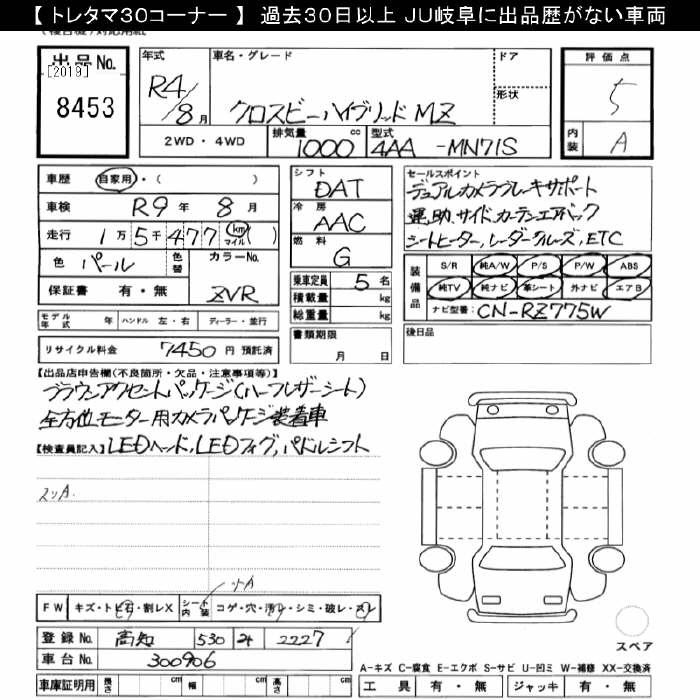 【 トレタマ30コーナー 】 過去30日以上 JU岐阜に出品歴がない車両
出品No.
[2019]
8453
年式
R4/8月
車名・グレード
クロスビーハイブリッド MZ
ドア
形状
2WD・4WD
排気量
1000 cc
型式
4AA -MN71S
評価点
5
内装
A
車歴 自家用・( )
車検 R9年 8月
走行 1万5千477 km マイル ( )
色 パール 色替 カラーNo.
保証書 有・無 ZVR
モデル年式 年 ハンドル 左・右 ディーラー・並行
リサイクル料金 7450 円 預託済
シフト
DAT
冷房
AAC
燃料
G
乗車定員 5 名
積載量 kg
総重量 kg
書類期限
月 日
セールスポイント
デュアルカメラブレーキサポート
運,助,サイド,カーテンエアバック
シートヒーター,レーダークルーズ,ETC
装備品
S/R 純A/W P/S P/W ABS
純TV 純ナビ 革シート 外ナビ エアB
ナビ型番: CN-RZ775W
後日品
【出品店申告欄(不良箇所・欠品・注意事項等)】
ブラウンアクセントパッケージ(ハーフレザーシート)
全方位モニター用カメラパッケージ装着車
【検査員記入】 LEDヘッド,LEDフォグ,パドルシフト
ソリA
FW キズ・トビ石・割レX シート内装 コゲ・穴・汚レ・シミ・破レ・スレ
登録No. 高知 530 す 2227
車台No. 300906
車庫証明用 長さ cm 幅 cm 高さ cm
スペア
A-キズ C-腐食 E-エクボ S-サビ U-凹ミ W-補修 XX-交換済
工具 有・無 ジャッキ 有・無